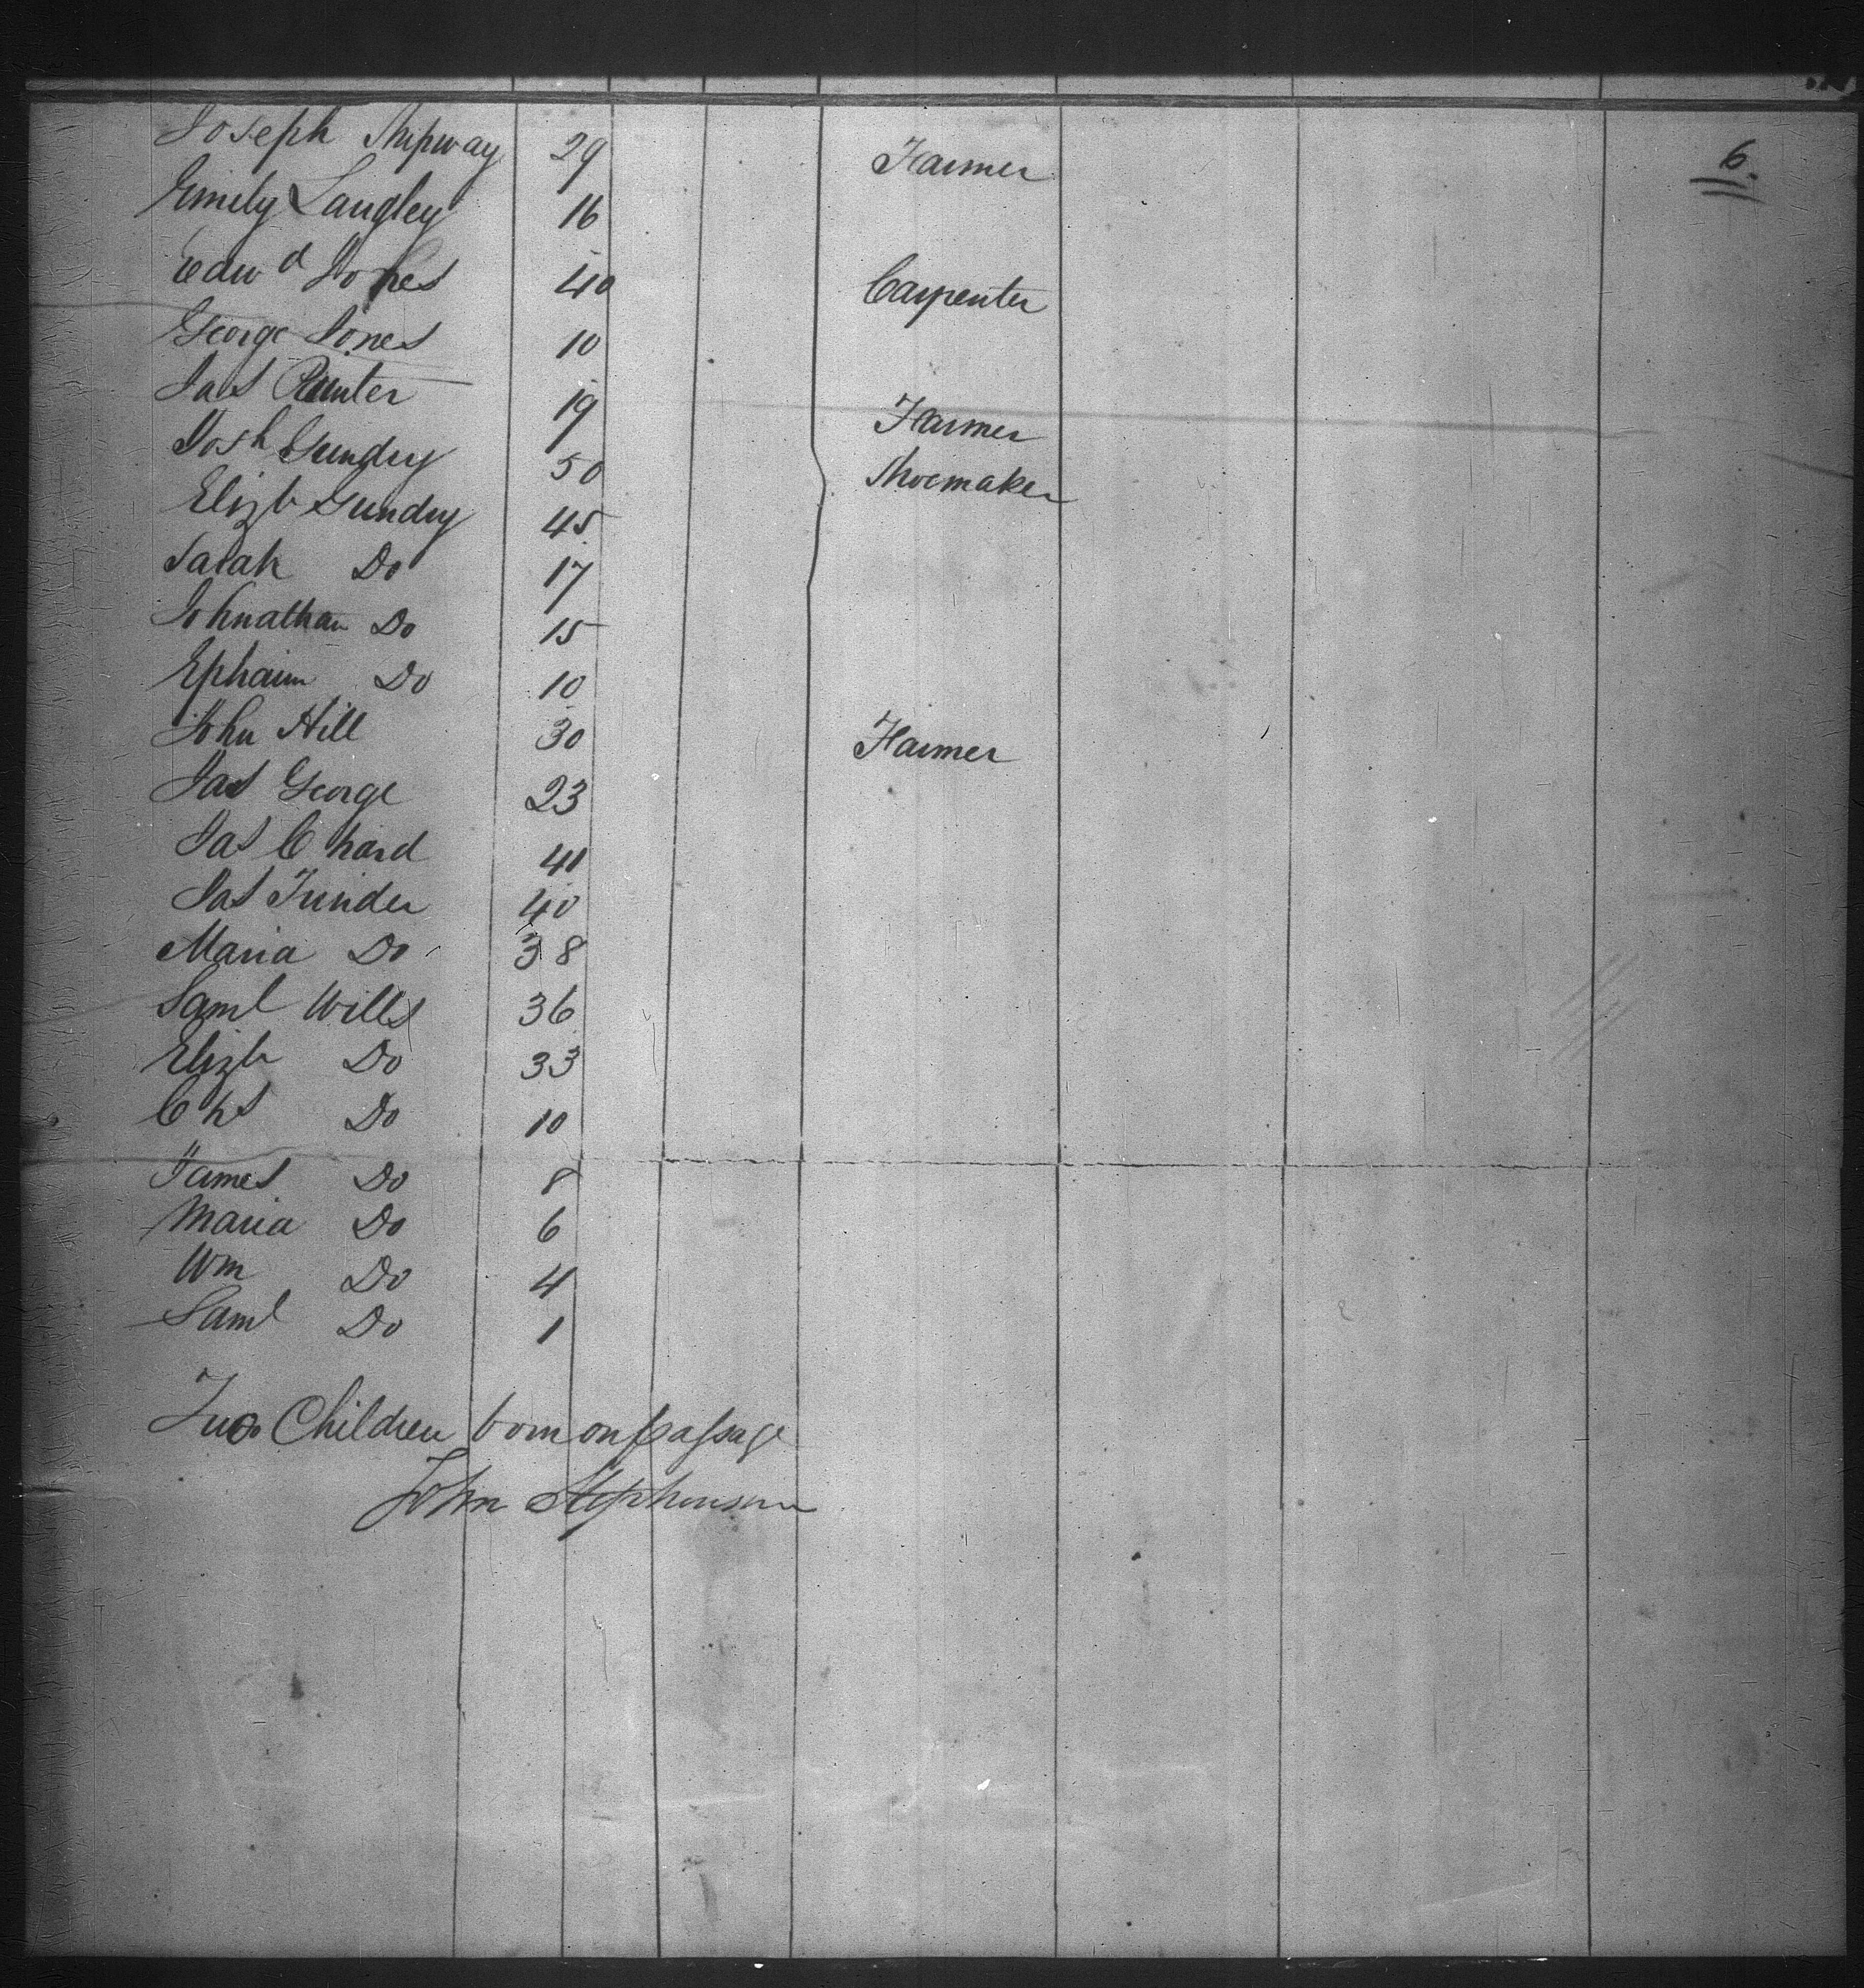 Joseph Shipway 29 Farmer 6.
Emily Langley 16
Edwd Jones 40 Carpenter
George Jones 10
Jas Punter 19 Farmer
Josh Gundry 50 Shoemaker
Elizb Gundry 45
Sarah Do 17
Johnathan Do 15
Ephaim Do 10
John Hill 30 Farmer
Jas George 23
Jas Chard 41
Jas 40
Maria Do 38
Saml Wills 36
Elizb Do 33
Chs Do 10
James Do 8
Maria Do 6
Wm Do 4
Saml Do 1
Two Children born on passage
John Stephenson